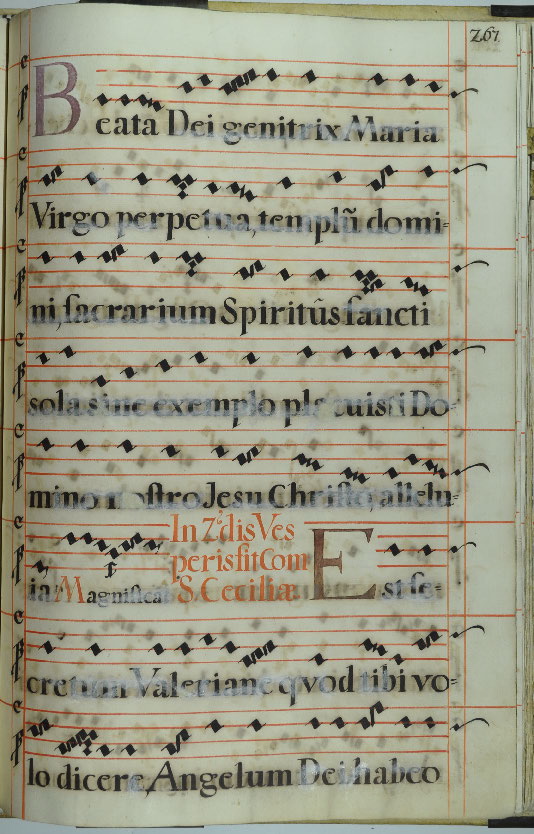 267
Beata Dei genitrix Maria
Virgo perpetua, templũ domi-
ni, sacrarium Spiritũs sancti
sola sine exemplo placuisti Do-
mino nostro Jesu Christo, allelu-
ia Magnificat In 2.is dis Ves
peris fit Com
S. Ceciliæ Est se-
cretum Valeriane qvod tibi vo-
lo dicere, Angelum Dei habeo